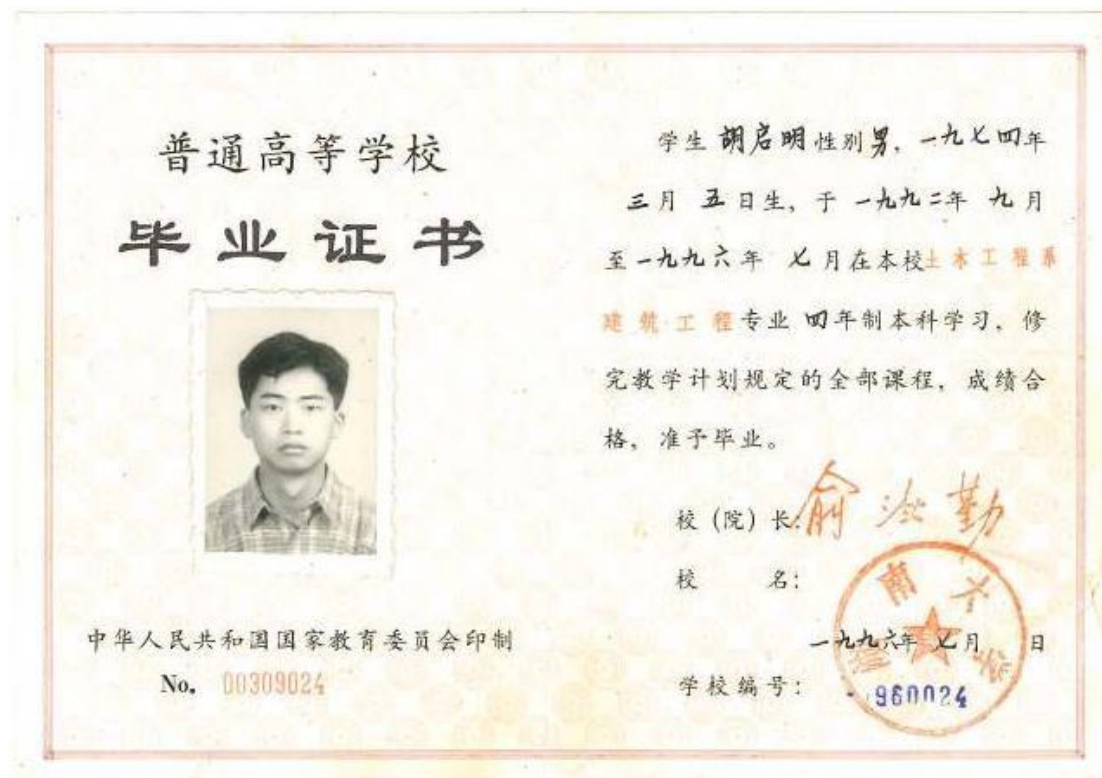 普通高等学校
毕业证书
中华人民共和国国家教育委员会印制
No. 00309024
学生 胡启明 性别 男，一九七四年
三月 五日生，于 一九九二年 九月
至一九九六年 七月在本校土木工程系
建筑工程专业 四年制本科学习，修
完教学计划规定的全部课程，成绩合
格，准予毕业。
校（院）长：俞汝勤
校 名：
湖南大学
一九九六年 七月 日
学校编号： 960024